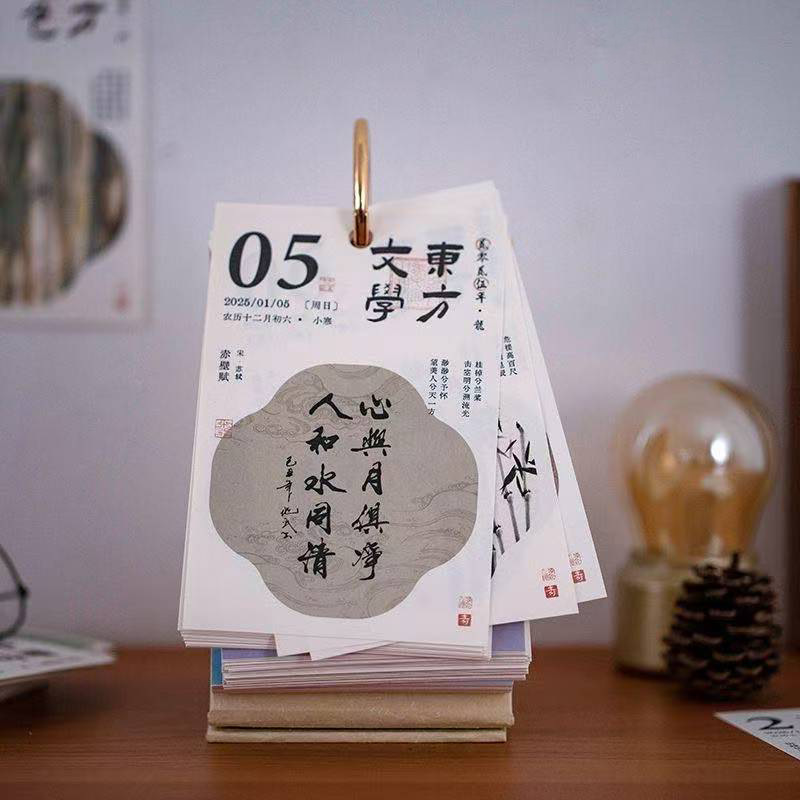 05
2025/01/05 〔周日〕
农历十二月初六 · 小寒
東方
文學
贰零贰伍年 · 龍
桂棹兮兰桨
击空明兮溯流光
渺渺兮予怀
望美人兮天一方
宋 · 苏轼
赤壁赋
心與月俱净
人和水同清
危楼高百尺
2